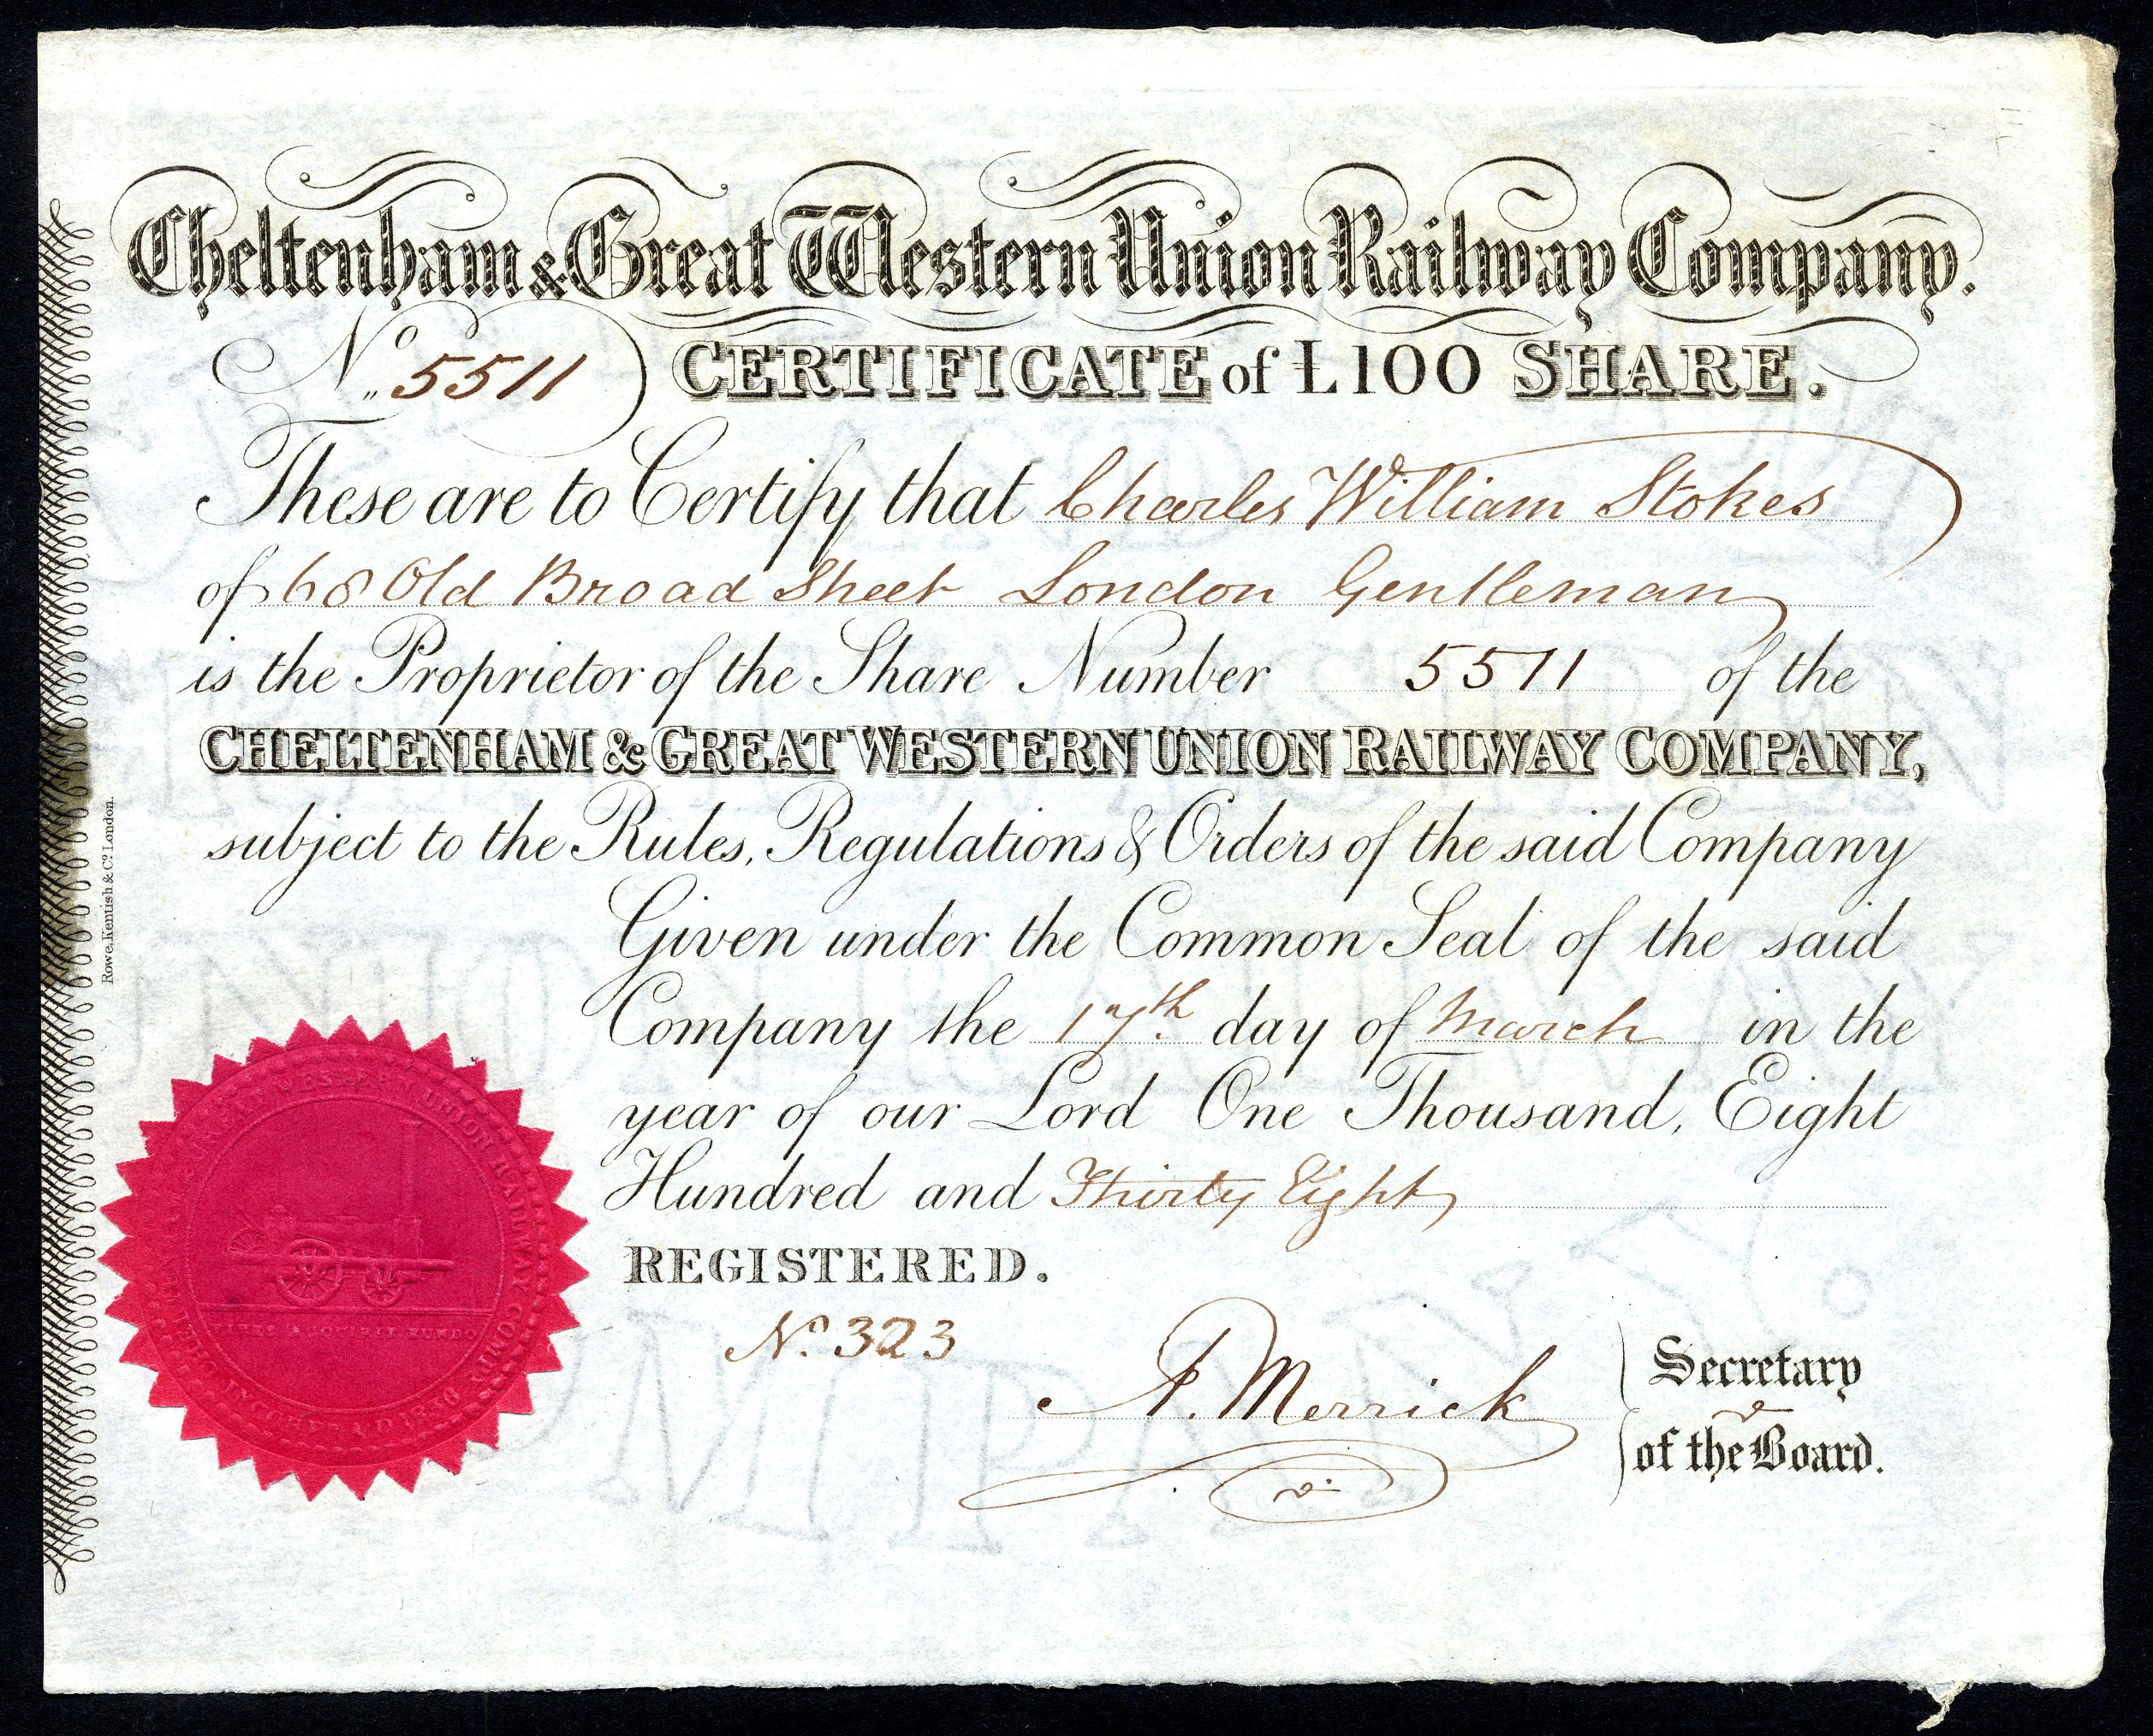 Cheltenham & Great Western Union Railway Company.
No. 5511 CERTIFICATE of £100 SHARE.
These are to Certify that Charles William Stokes
of 68 Old Broad Street London Gentleman
is the Proprietor of the Share Number 5511 of the
CHELTENHAM & GREAT WESTERN UNION RAILWAY COMPANY,
subject to the Rules, Regulations & Orders of the said Company
Given under the Common Seal of the said
Company the 17th day of March in the
year of our Lord One Thousand, Eight
Hundred and Thirty Eight
REGISTERED.
No. 323
A. Merrick
Secretary
of the Board.
Rowe, Kentish & Co. London.
CHELTENHAM & GREAT WESTERN UNION RAILWAY COMPY